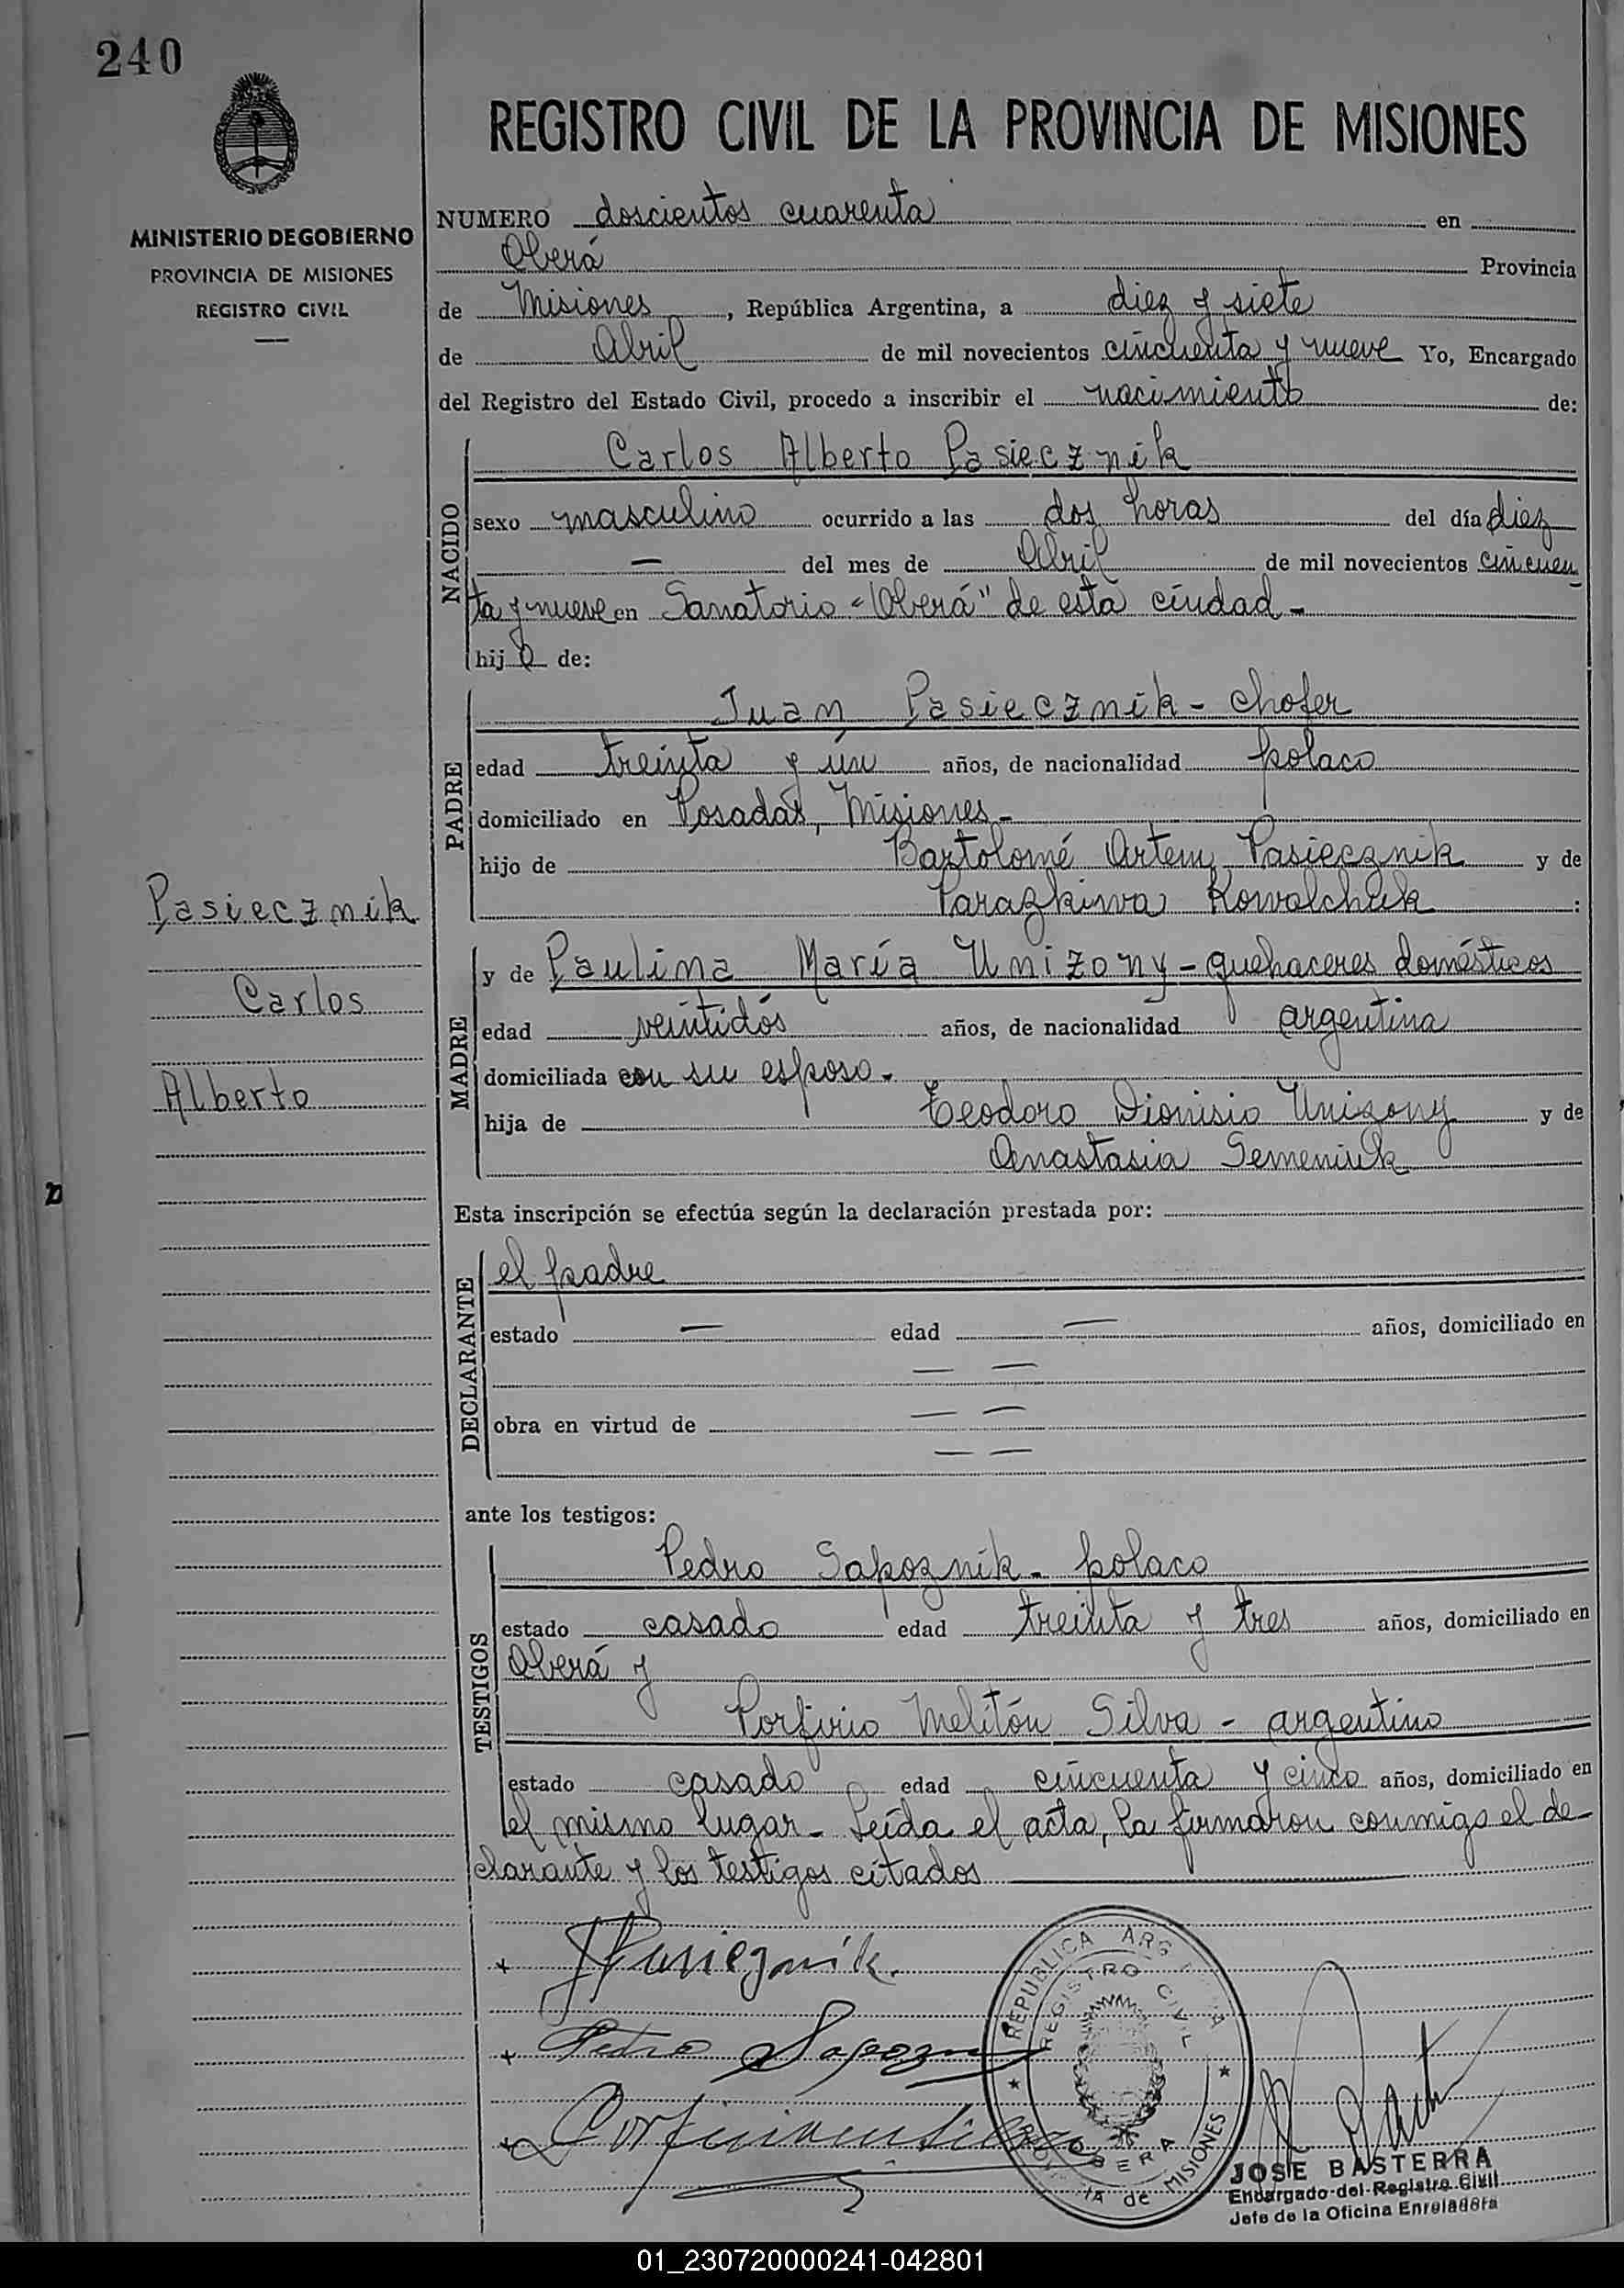 240
MINISTERIO DE GOBIERNO
PROVINCIA DE MISIONES
REGISTRO CIVIL
REGISTRO CIVIL DE LA PROVINCIA DE MISIONES
NUMERO doscientos cuarenta en
Oberá Provincia
de Misiones, República Argentina, a diez y siete
de Abril de mil novecientos cincuenta y nueve Yo, Encargado
del Registro del Estado Civil, procedo a inscribir el nacimiento de:
NACIDO
Carlos Alberto Pasiecznik
sexo masculino ocurrido a las dos horas del día diez
— del mes de Abril de mil novecientos cincuen
ta y nueve en Sanatorio "Oberá" de esta ciudad -
hijo de:
PADRE
Juan Pasiecznik - chofer
edad treinta y ún años, de nacionalidad polaco
domiciliado en Posadas, Misiones -
hijo de Bartolomé Artemy Pasiecznik y de
Parazkiwa Kowalchuk :
MADRE
y de Paulina María Unizony - quehaceres domésticos
edad veintidós años, de nacionalidad argentina
domiciliada con su esposo -
hija de Teodoro Dionisio Unizony y de
Anastasia Semeniuk
Pasiecznik
Carlos
Alberto
Esta inscripción se efectúa según la declaración prestada por:
DECLARANTE
el padre
estado — edad — años, domiciliado en
— —
obra en virtud de — —
— —
ante los testigos:
TESTIGOS
Pedro Sapoznik - polaco
estado casado edad treinta y tres años, domiciliado en
Oberá y
Porfirio Melitón Silva - argentino
estado casado edad cincuenta y cinco años, domiciliado en
el mismo lugar - Leída el acta, la firmaron conmigo el de-
clarante y los testigos citados
Pedro
REPUBLICA ARG
REGISTRO CIVIL
OBERA
de MISIONES
JOSE BASTERRA
Encargado del Registro Civil
Jefe de la Oficina Enroladora
01_230720000241-042801